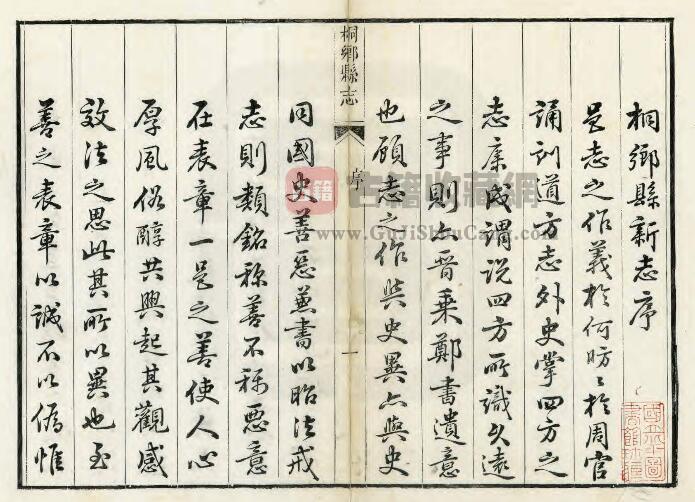 桐鄉縣新志序
邑志之作義於何昉昉於周官
誦訓道方志外史掌四方之
志康成謂說四方所識久遠
之事則亦晋乗鄭書遺意
也顧志之作與史異亦與史
桐鄉縣志
序
一
同國史善惡兼書以昭法戒
志則類銘称善不称惡意
在表章一邑之善使人心
厚風俗醇共興起其觀感
效法之思此其所以異也至
善之表章以誠不以偽惟
古籍收藏網
www.GuJiShuCang.com